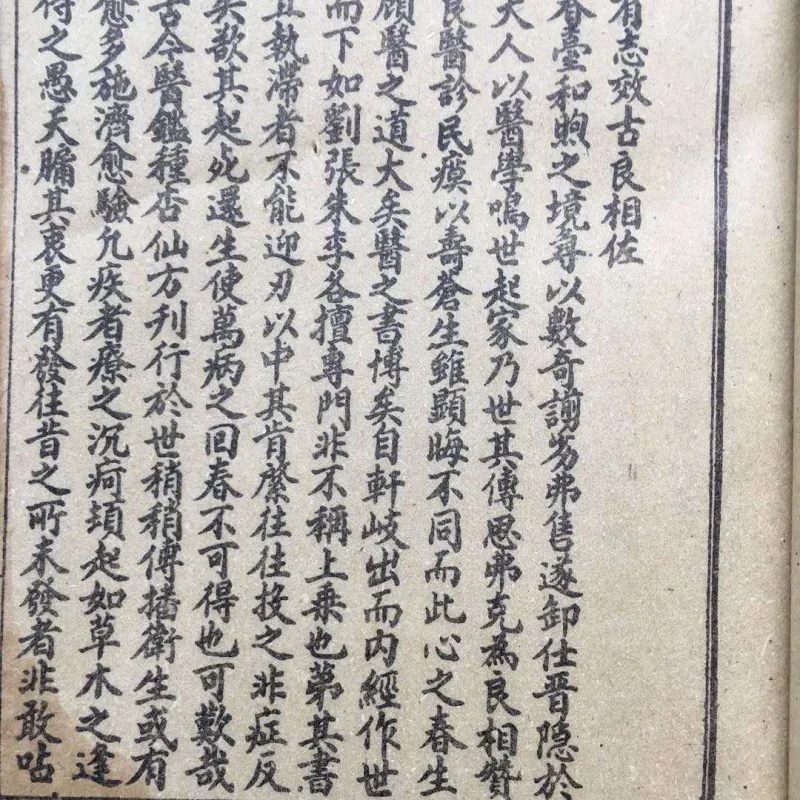 有志效古良相佐
春臺和煦之境尋以數奇謭劣弗售遂卸仕晉隱於
大人以醫學鳴世起家乃世其傳思弗克為良相贊
良醫診民瘼以壽蒼生雖顯晦不同而此心之春生
顧醫之道大矣醫之書博矣自軒岐出而內經作世
而下如劉張朱李各擅專門非不稱上乘也苐其書
其執滯者不能迎刃以中其肯綮往往投之非症反
矣欲其起死還生使萬病之回春不可得也可歎哉
古今醫鑑種杏仙方刊行於世稍稍傳播衛生或有
愈多施濟愈驗凢疾者療之沉疴頓起如草木之逢
待之愚天牖其衷更有發往昔之所未發者非敢呫